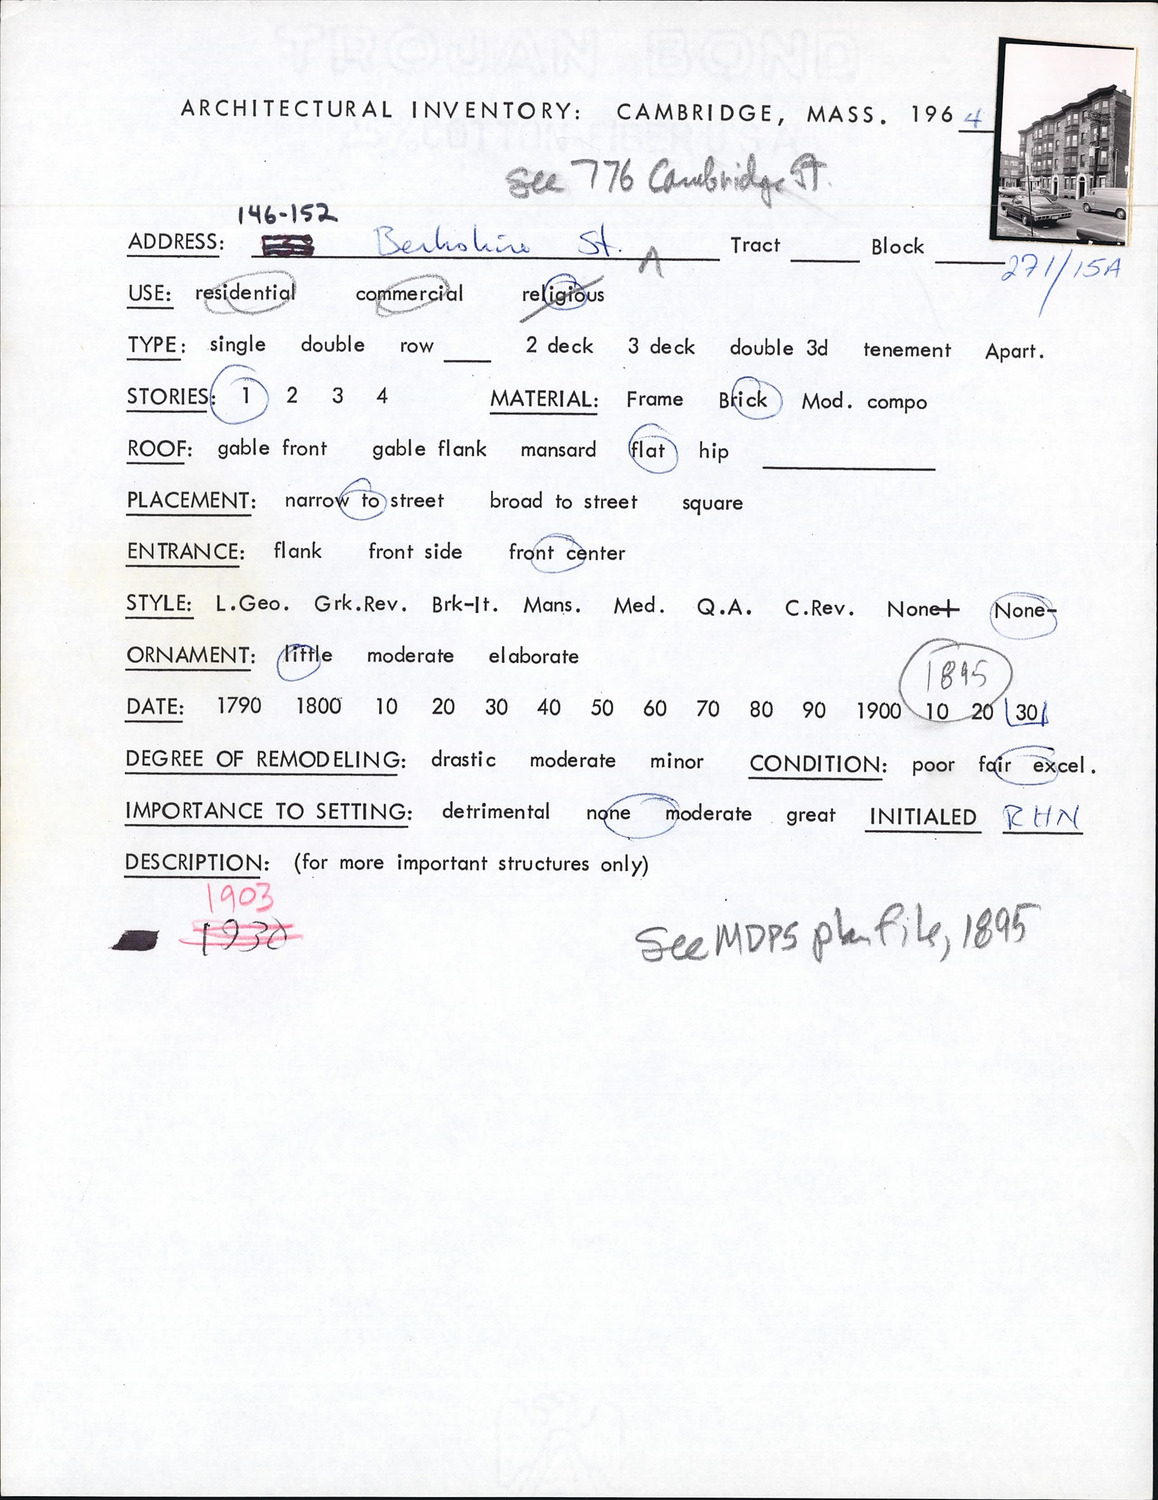 ARCHITECTURAL INVENTORY: CAMBRIDGE, MASS. 1964
See 776 Cambridge St.
146-152
ADDRESS: Berkshire St. Tract Block
271/15A
USE: residential commercial religious
TYPE: single double row 2 deck 3 deck double 3d tenement Apart.
STORIES: 1 2 3 4 MATERIAL: Frame Brick Mod. compo
ROOF: gable front gable flank mansard flat hip
PLACEMENT: narrow to street broad to street square
ENTRANCE: flank front side front center
STYLE: L.Geo. Grk.Rev. Brk-It. Mans. Med. Q.A. C.Rev. None+ None-
ORNAMENT: little moderate elaborate
1895
DATE: 1790 1800 10 20 30 40 50 60 70 80 90 1900 10 20 30
DEGREE OF REMODELING: drastic moderate minor CONDITION: poor fair excel.
IMPORTANCE TO SETTING: detrimental none moderate great INITIALED RHN
DESCRIPTION: (for more important structures only)
1903
1930
See MDPS plan file, 1895
TROJAN BOND